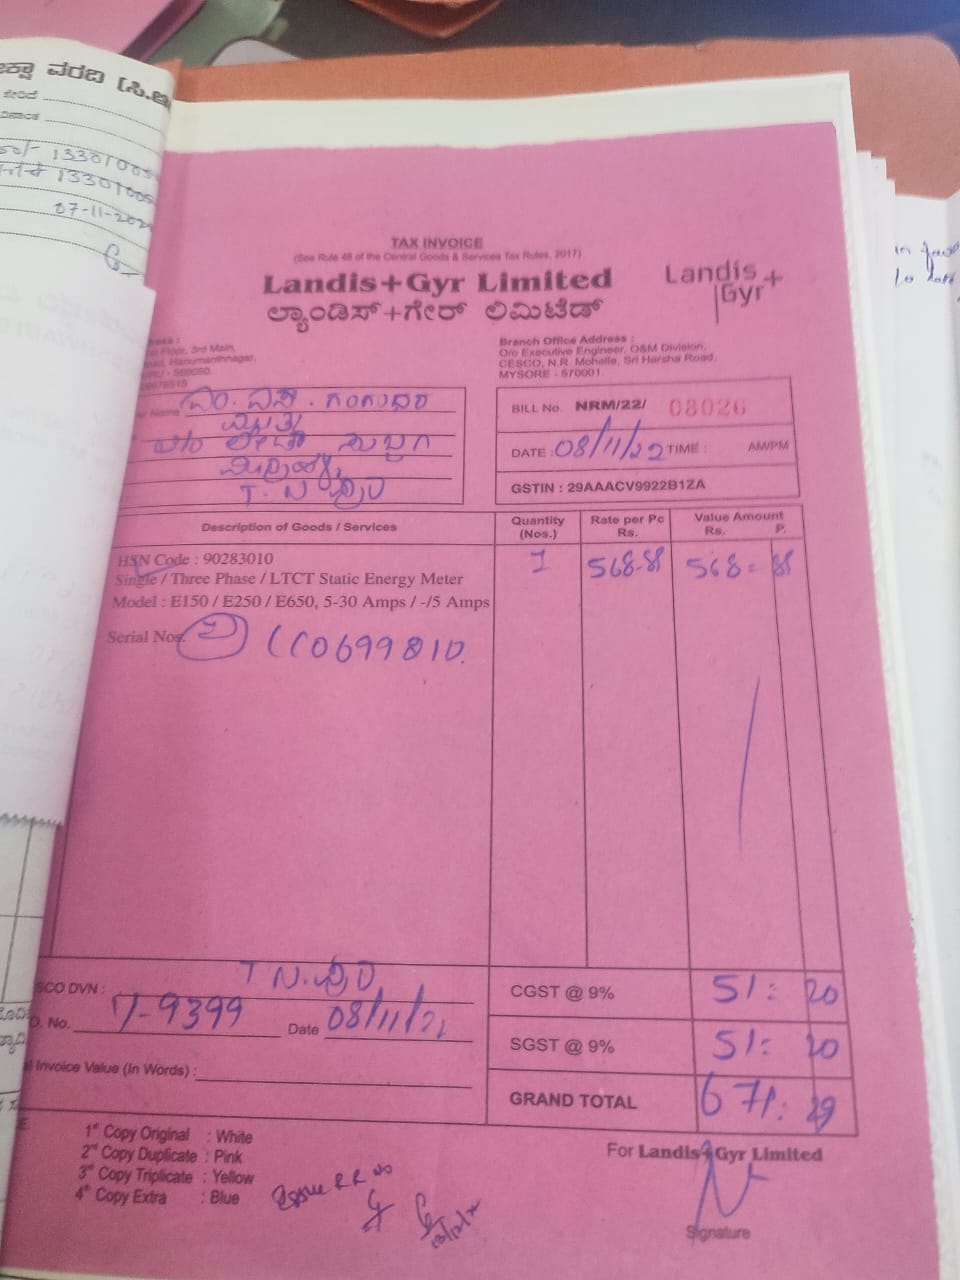 ವರದಿ
133010
133010
07-11-202
TAX INVOICE
(See Rule 48 of the Central Goods & Services Tax Rules, 2017)
Landis+Gyr Limited
ಲ್ಯಾಂಡಿಸ್+ಗೇರ್ ಲಿಮಿಟೆಡ್
Landis+
Gyr
Floor, 3rd Main,
Hanumanthnagar,
Branch Office Address :
O/o Executive Engineer, O&M Division,
CESCO, N.R. Mohalla, Sri Harsha Road,
MYSORE - 570001.
Name ಎಂ. ಎಸ್. ಗಂಗಾಧರ
T. N ಪುರ
BILL No. NRM/22/ 08026
DATE : 08/11/22 TIME : AM/PM
GSTIN : 29AAACV9922B1ZA
Description of Goods / Services
Quantity
(Nos.)
Rate per Pc
Rs.
Value Amount
Rs. P.
HSN Code : 90283010
1 568-81 568= 81
Single / Three Phase / LTCT Static Energy Meter
Model : E150 / E250 / E650, 5-30 Amps / -/5 Amps
Serial Nos. 0699810
SCO DVN : T N. ಪುರ
No. 9399 Date 08/11/22
Invoice Value (In Words) :
CGST @ 9% 51: 20
SGST @ 9% 51: 20
GRAND TOTAL 671: 29
1st Copy Original : White
2nd Copy Duplicate : Pink
3rd Copy Triplicate : Yellow
4th Copy Extra : Blue
RR No
For Landis+Gyr Limited
Signature